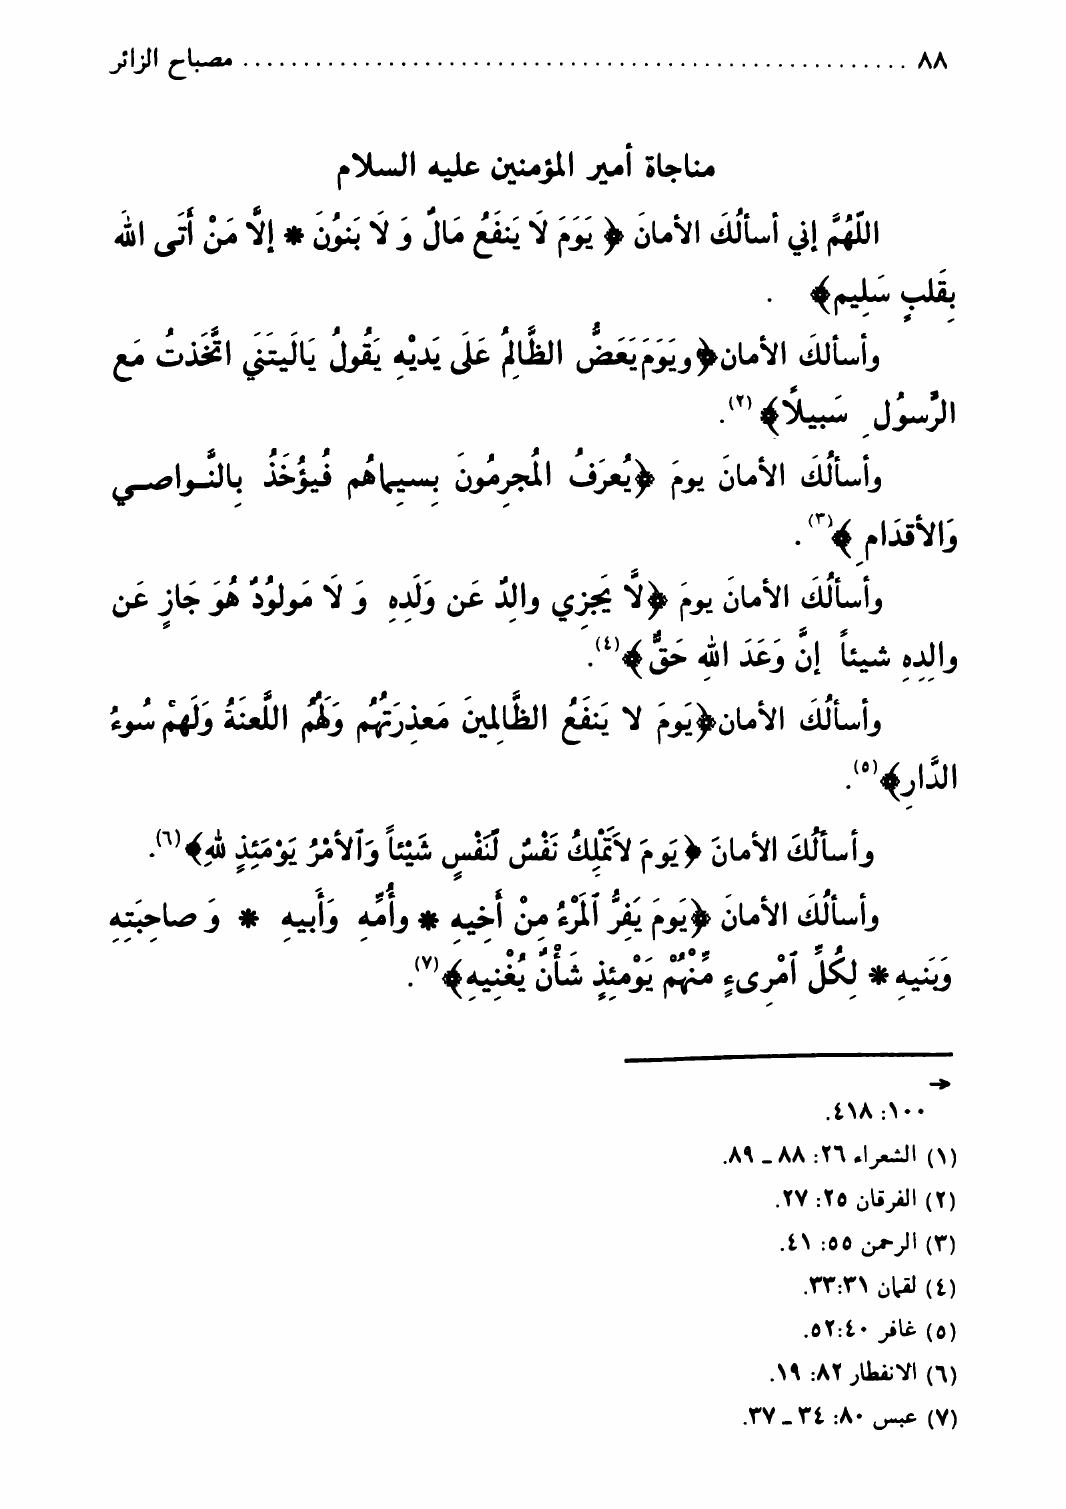 ٨٨ ........................................................ مصباح الزائر
مناجاة أمير المؤمنين عليه السلام
اللّهُمَّ إني أسألُكَ الأمانَ ﴿ يَوَمَ لَا يَنفَعُ مَالٌ وَ لَا بَنوُنَ * إلَّا مَنْ أَتَى اللهَ
بِقَلبٍ سَلِيم﴾ .
وأسألكَ الأمان﴿ويَوَمَ يَعَضُّ الظَّالِمُ عَلَى يَديْهِ يَقُولُ يَالَيتَنَي اتَّخَذتُ مَع
الرَّسوُلِ سَبيلًا﴾(٢).
وأسألُكَ الأمانَ يومَ ﴿يُعرَفُ المُجرِمُونَ بِسيماهُم فَيؤُخَذُ بِالنَّـواصـي
وَالأقدَامِ ﴾(٣).
وأسألُكَ الأمانَ يومَ ﴿لَّا يَجزِي والِدٌ عَن وَلَدِهِ وَ لَا مَولوُدٌ هُوَ جَازٍ عَن
والِدِهِ شيئاً إنَّ وَعَدَ اللهِ حَقٌّ ﴾(٤).
وأسألُكَ الأمان﴿يَومَ لا يَنفَعُ الظَّالِمينَ مَعذِرَتهُم وَلَهُمُ اللَّعنَةُ وَلَهمْ سُوءُ
الدَّارِ﴾(٥).
وأسألُكَ الأمانَ ﴿ يَومَ لاَتَمْلِكُ نَفْسٌ لنَفْسٍ شَيْئاً وَٱلأمْرُ يَوْمَئِذٍ للهِ﴾(٦).
وأسألُكَ الأمانَ ﴿يَومَ يَفِرُّ ٱلمَرْءُ مِنْ أَخِيهِ * وأُمِّهِ وَأَبيهِ * وَ صاحِبَتِهِ
وَبَنيهِ * لِكُلِّ ٱمْرِىءٍ مِّنْهُمْ يَوْمئِذٍ شَأْنٌ يُغْنِيهِ﴾(٧).
←
١٠٠: ٤١٨.
(١) الشعراء ٢٦: ٨٨ ـ ٨٩.
(٢) الفرقان ٢٥: ٢٧.
(٣) الرحمن ٥٥: ٤١.
(٤) لقمان ٣١:٣٣.
(٥) غافر ٤٠:٥٢.
(٦) الانفطار ٨٢: ١٩.
(٧) عبس ٨٠: ٣٤ ـ ٣٧.